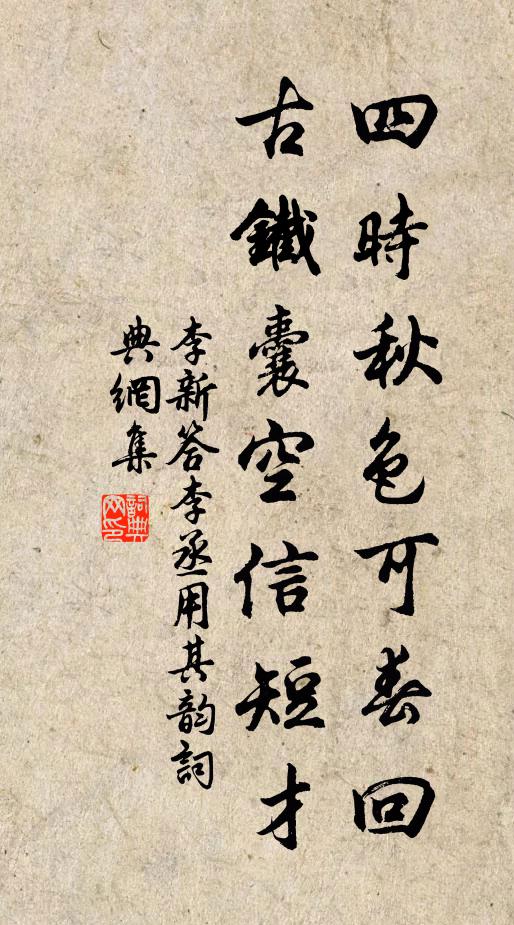 四時秋色可春回
古鐵囊空信短才
李新答李丞用其韵詞
典網集
詞典网印